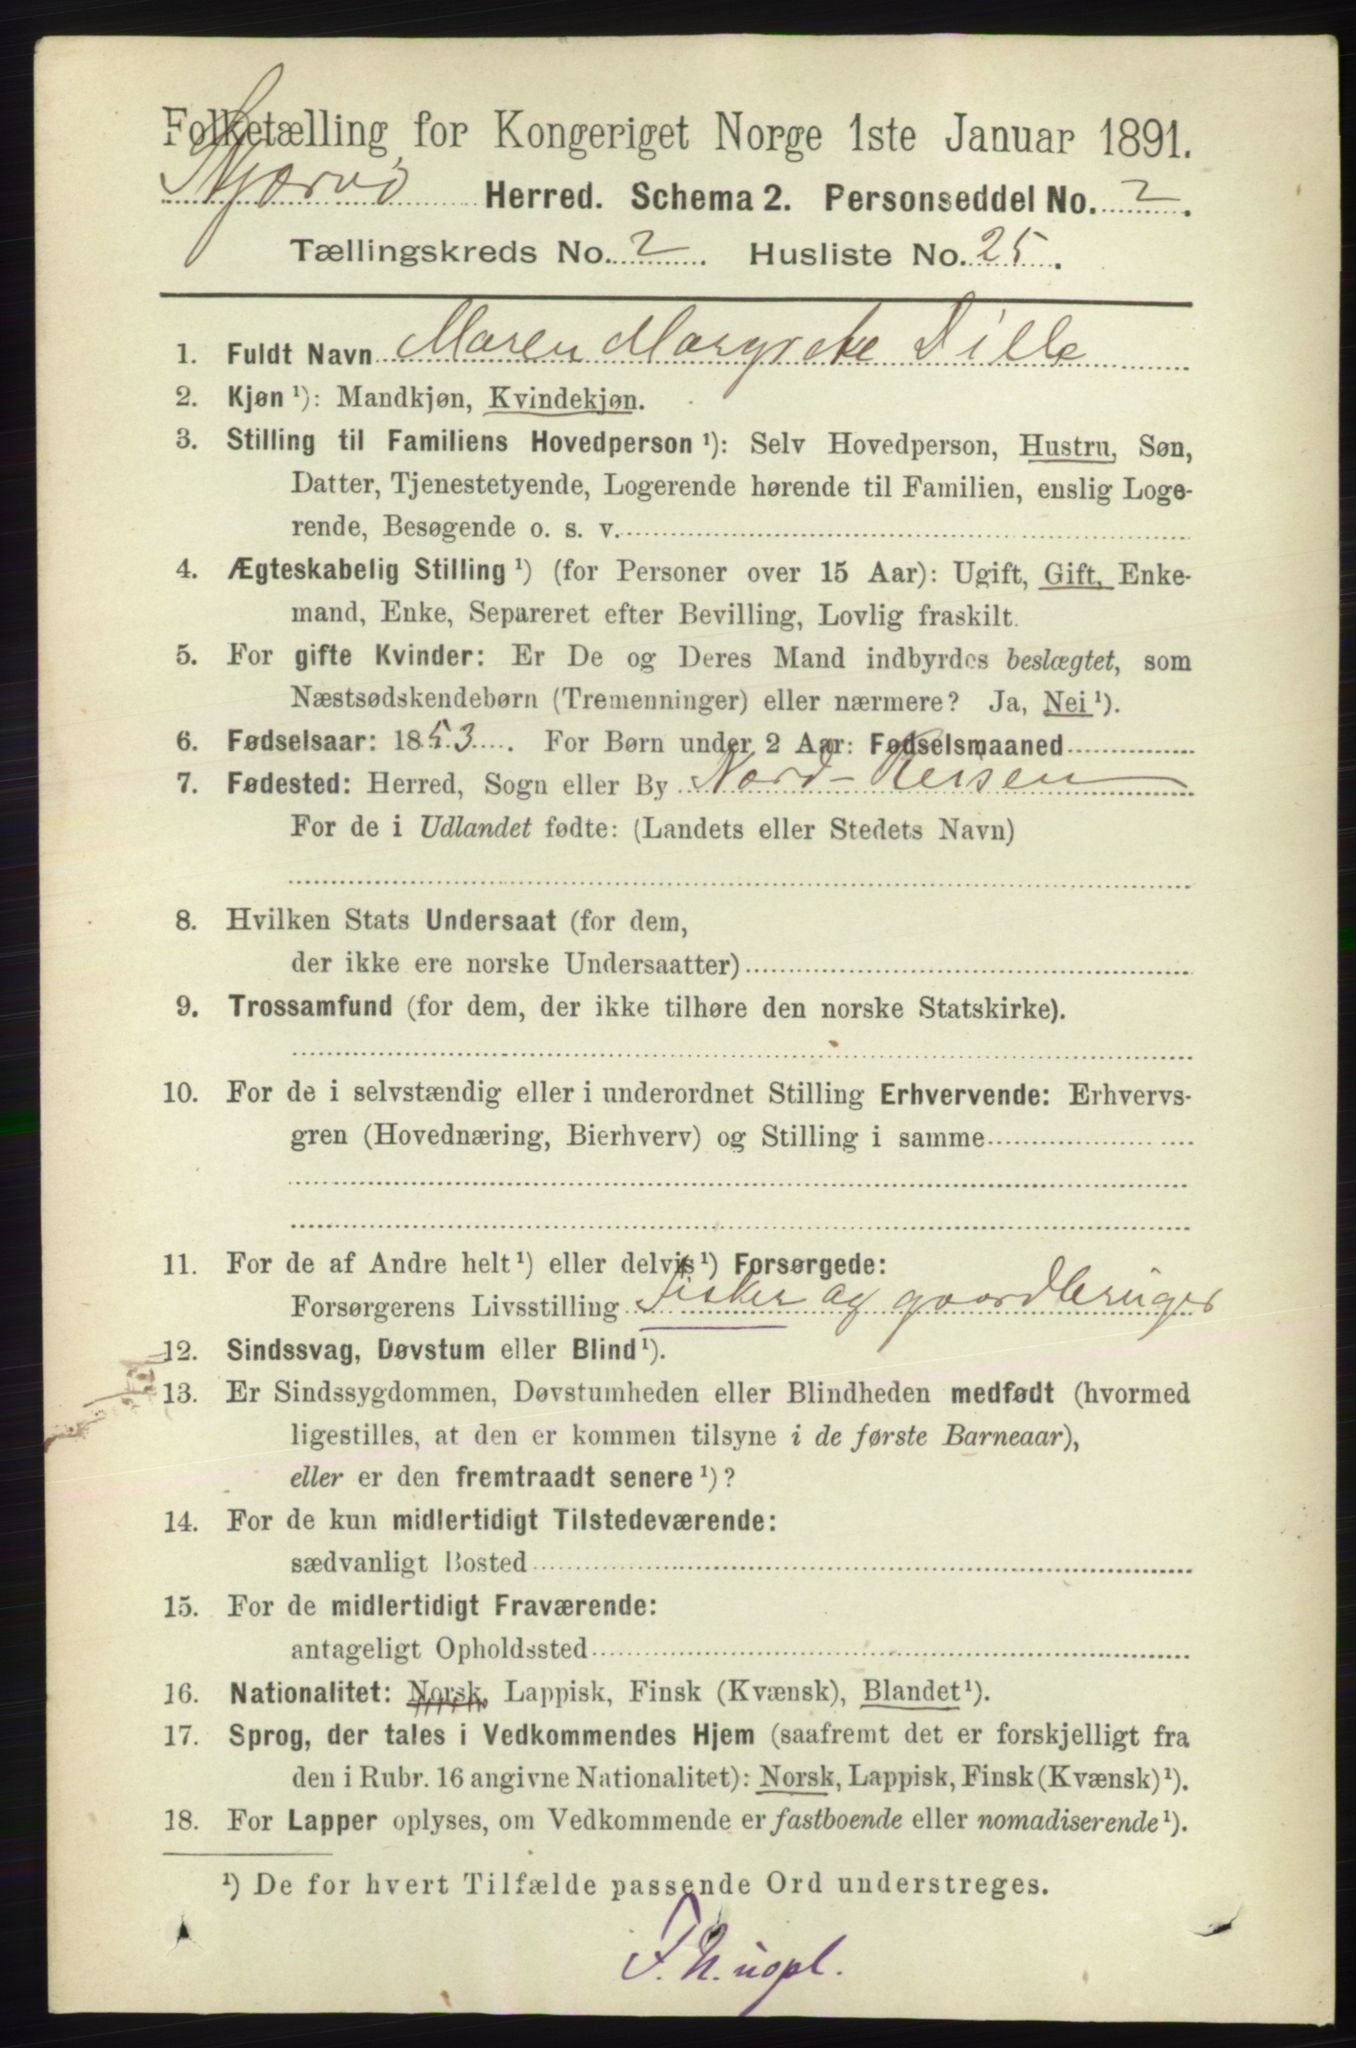 Folketælling for Kongeriget Norge 1ste Januar 1891.
Skjærvø Herred. Schema 2. Personseddel No. 2.
Tællingskreds No. 2. Husliste No. 25.
1. Fuldt Navn Maren Margrete Dille
2. Kjøn ¹): Mandkjøn, Kvindekjøn.
3. Stilling til Familiens Hovedperson ¹): Selv Hovedperson, Hustru, Søn,
Datter, Tjenestetyende, Logerende hørende til Familien, enslig Loge-
rende, Besøgende o. s. v.
4. Ægteskabelig Stilling ¹) (for Personer over 15 Aar): Ugift, Gift, Enke-
mand, Enke, Separeret efter Bevilling, Lovlig fraskilt.
5. For gifte Kvinder: Er De og Deres Mand indbyrdes beslægtet, som
Næstsødskendebørn (Tremenninger) eller nærmere? Ja, Nei ¹).
6. Fødselsaar: 1853. For Børn under 2 Aar: Fødselsmaaned
7. Fødested: Herred, Sogn eller By Nord-Reisen
For de i Udlandet fødte: (Landets eller Stedets Navn)
8. Hvilken Stats Undersaat (for dem,
der ikke ere norske Undersaatter)
9. Trossamfund (for dem, der ikke tilhøre den norske Statskirke).
10. For de i selvstændig eller i underordnet Stilling Erhvervende: Erhvervs-
gren (Hovednæring, Bierhverv) og Stilling i samme
11. For de af Andre helt ¹) eller delvis ¹) Forsørgede:
Forsørgerens Livsstilling Fisker og gaardbruger
12. Sindssvag, Døvstum eller Blind ¹).
13. Er Sindssygdommen, Døvstumheden eller Blindheden medfødt (hvormed
ligestilles, at den er kommen tilsyne i de første Barneaar),
eller er den fremtraadt senere ¹)?
14. For de kun midlertidigt Tilstedeværende:
sædvanligt Bosted
15. For de midlertidigt Fraværende:
antageligt Opholdssted
16. Nationalitet: Norsk, Lappisk, Finsk (Kvænsk), Blandet ¹).
17. Sprog, der tales i Vedkommendes Hjem (saafremt det er forskjelligt fra
den i Rubr. 16 angivne Nationalitet): Norsk, Lappisk, Finsk (Kvænsk) ¹).
18. For Lapper oplyses, om Vedkommende er fastboende eller nomadiserende ¹).
¹) De for hvert Tilfælde passende Ord understreges.
F. N. uopl.